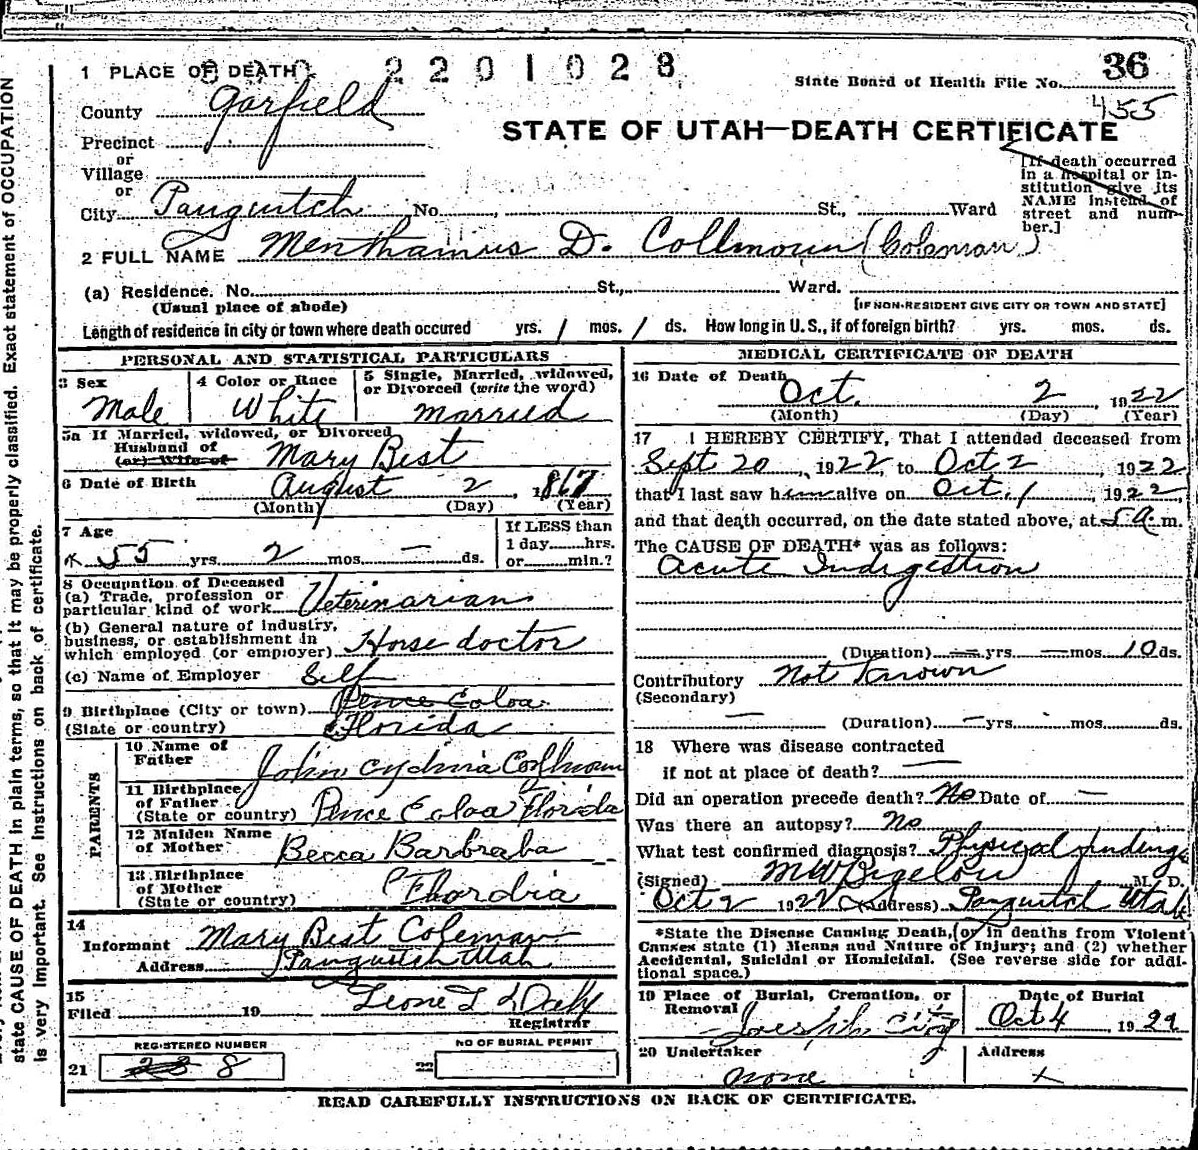 1 PLACE OF DEATH 2201028
State Board of Health File No. 36
455
County Garfield
STATE OF UTAH—DEATH CERTIFICATE
Precinct
or
Village
or
City Panguitch No. , St., Ward
[If death occurred
in a hospital or in-
stitution give its
NAME instead of
street and num-
ber.]
2 FULL NAME Menthamus D. Collmoun (Coleman)
(a) Residence. No. St., Ward.
(Usual place of abode) [IF NON-RESIDENT GIVE CITY OR TOWN AND STATE]
Length of residence in city or town where death occured yrs. 1 mos. 1 ds. How long in U. S., if of foreign birth? yrs. mos. ds.
PERSONAL AND STATISTICAL PARTICULARS
3 Sex
Male
4 Color or Race
White
5 Single, Married, widowed,
or Divorced (write the word)
married
5a If Married, widowed, or Divorced
Husband of
(or) Wife of Mary Best
6 Date of Birth August 2, 1867
(Month) (Day) (Year)
7 Age
55 yrs. 2 mos. — ds.
If LESS than
1 day hrs.
or min.?
8 Occupation of Deceased
(a) Trade, profession or
particular kind of work Veterinarian
(b) General nature of industry,
business, or establishment in
which employed (or employer) Horse doctor
(c) Name of Employer Self
9 Birthplace (City or town) Pence Coloa
(State or country) Florida
PARENTS
10 Name of
Father John Cydnia Collmoun
11 Birthplace
of Father
(State or country) Pence Coloa Florida
12 Maiden Name
of Mother Becca Barbraba
13 Birthplace
of Mother
(State or country) Flordia
14
Informant Mary Best Coleman
Address Panguitch Utah
15
Filed 19
Registrar
REGISTERED NUMBER
21 8
NO OF BURIAL PERMIT
22
MEDICAL CERTIFICATE OF DEATH
16 Date of Death Oct. 2 1922
(Month) (Day) (Year)
17 I HEREBY CERTIFY, That I attended deceased from
Sept 20, 1922, to Oct 2, 1922
that I last saw him alive on Oct. 1, 1922,
and that death occurred, on the date stated above, at 5 a. m.
The CAUSE OF DEATH* was as follows:
Acute Indigestion
(Duration) — yrs. — mos. 10 ds.
Contributory Not Known
(Secondary)
— (Duration) — yrs. mos. ds.
18 Where was disease contracted
if not at place of death? —
Did an operation precede death? No Date of —
Was there an autopsy? No
What test confirmed diagnosis? Physical findings
(Signed) M W Bigelow M. D.
Oct 2 1922 (Address) Panguitch Utah
*State the Disease Causing Death, or in deaths from Violent
Causes state (1) Means and Nature of Injury; and (2) whether
Accidental, Suicidal or Homicidal. (See reverse side for addi-
tional space.)
19 Place of Burial, Cremation, or
Removal
Joesph City
Date of Burial
Oct 4, 1922
20 Undertaker
none
Address
x
READ CAREFULLY INSTRUCTIONS ON BACK OF CERTIFICATE.
state CAUSE OF DEATH in plain terms, so that it may be properly classified. Exact statement of OCCUPATION
is very important. See instructions on back of certificate.